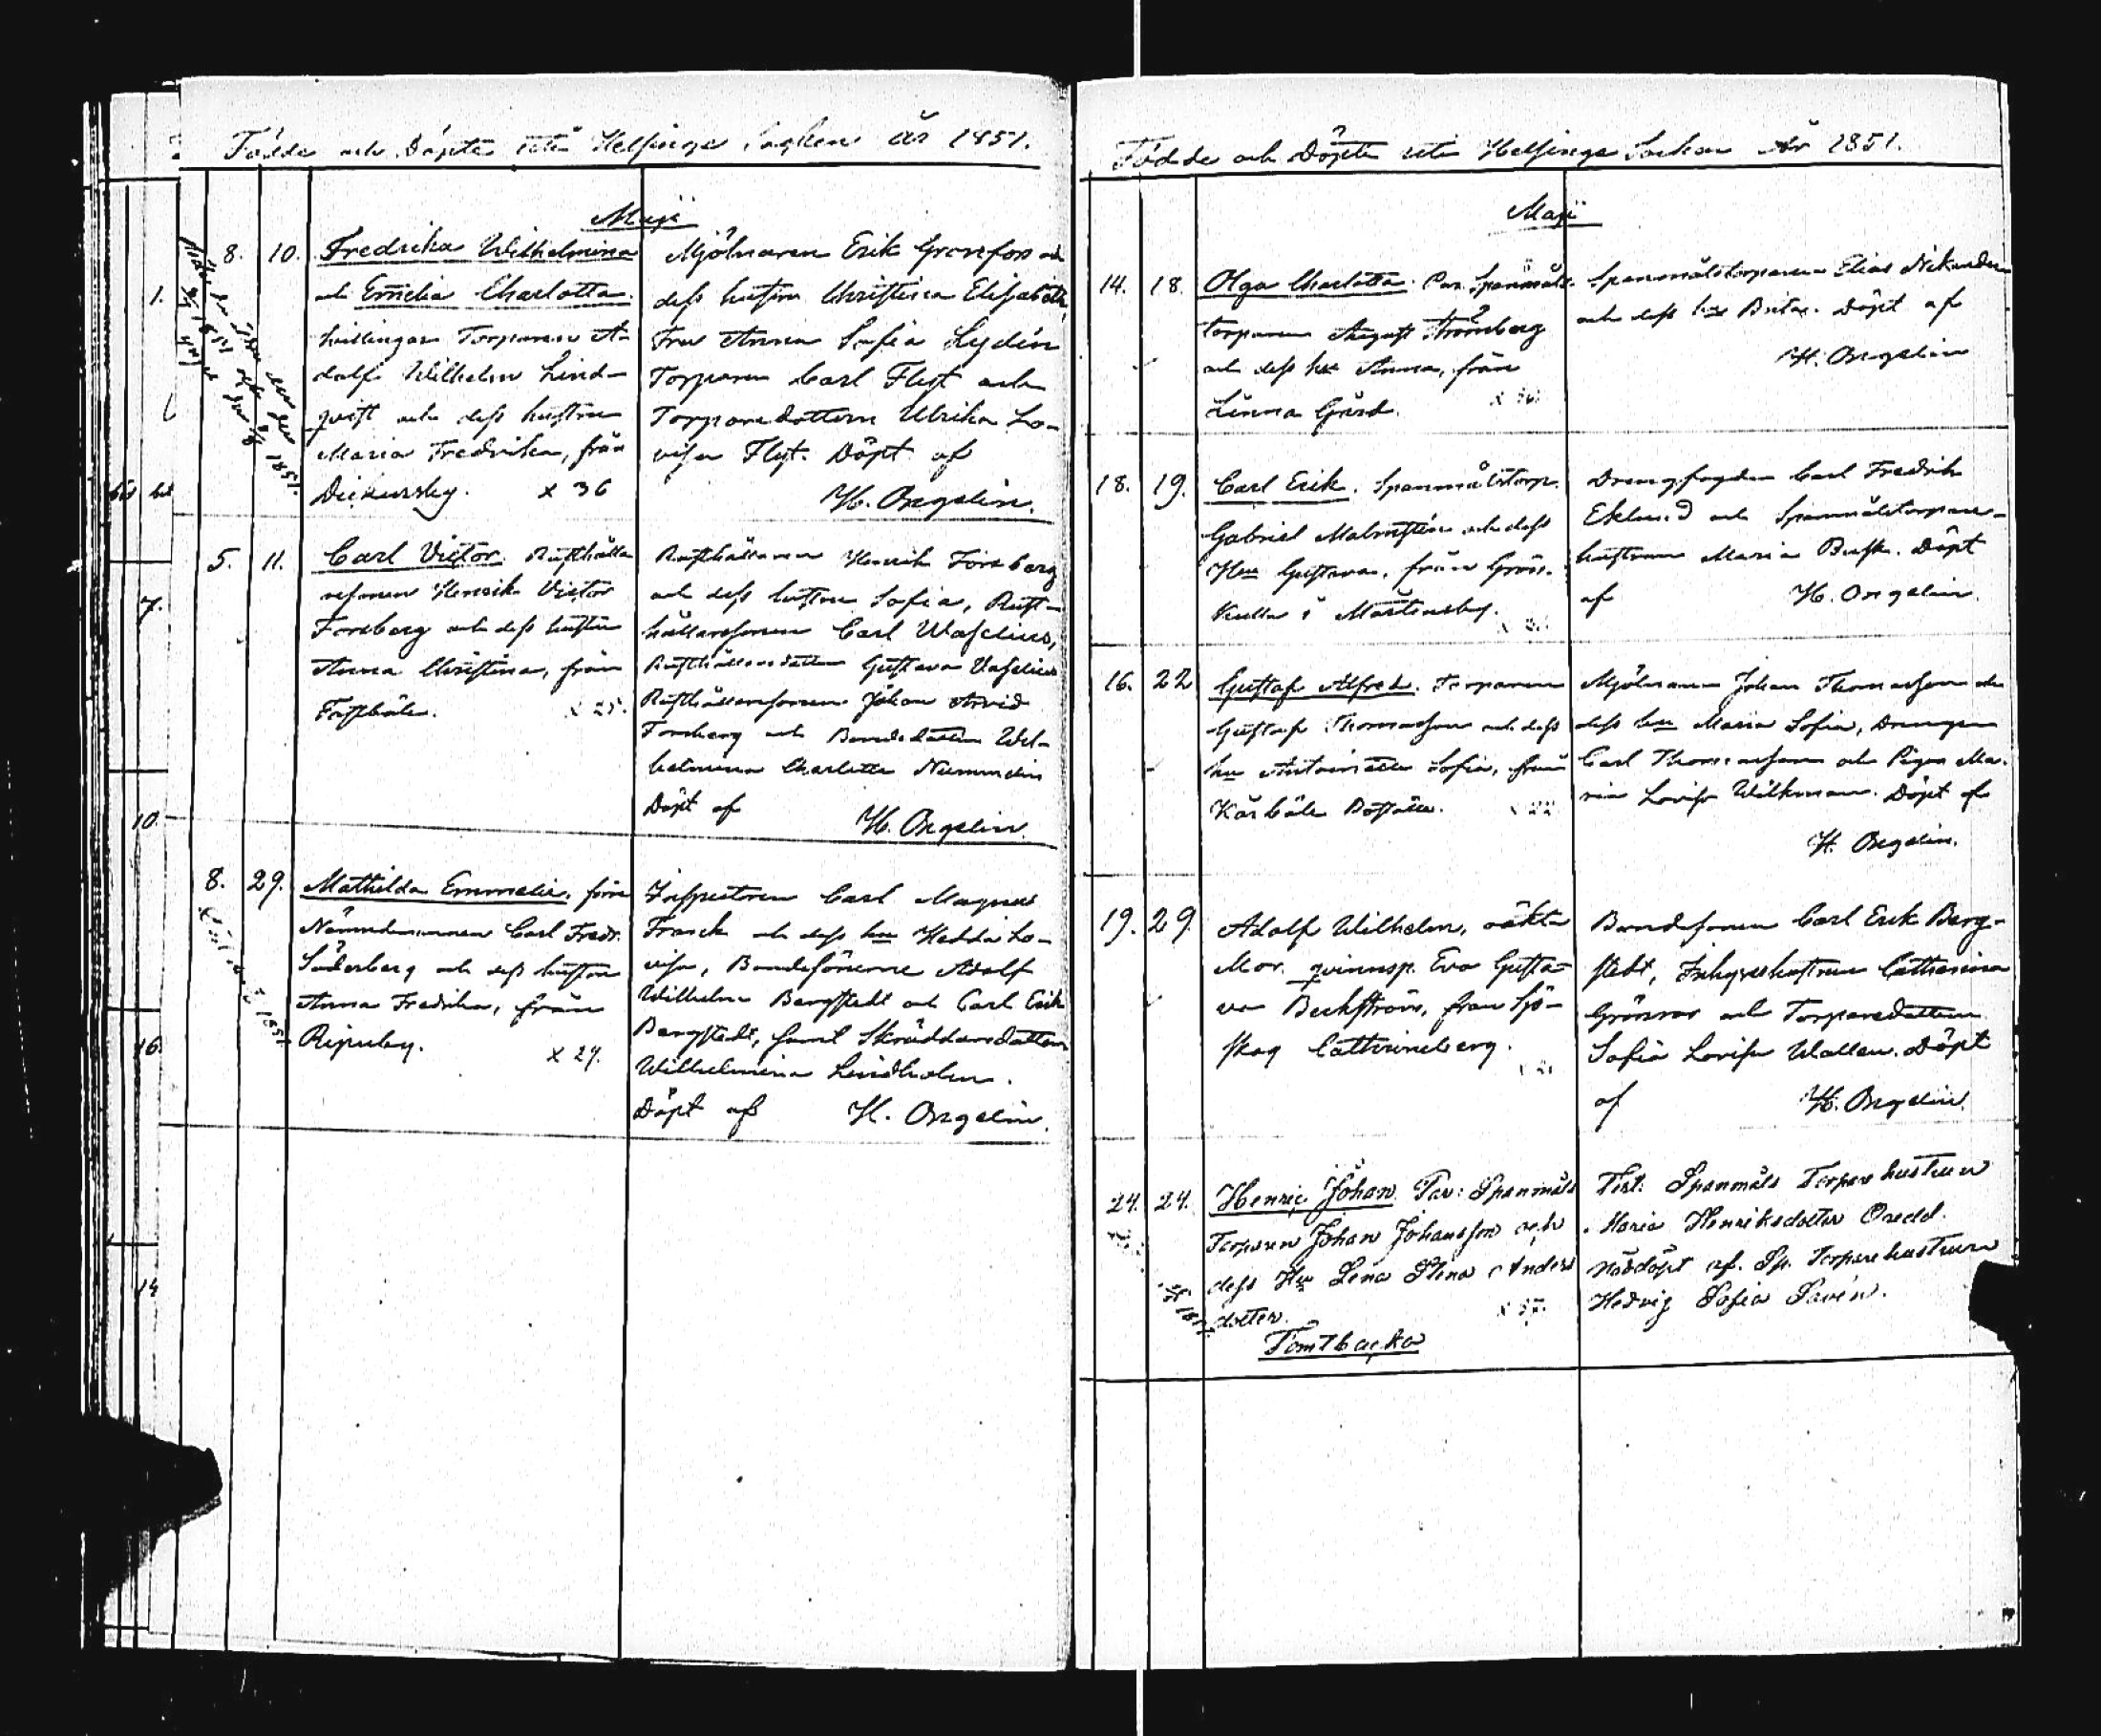 Födde och Döpte uti Helsinge Socken År 1851.
Maji
8. 10. Fredrika Wilhelmina
och Emelia Charlotta.
tvillingar Torparen A-
dolf Wilhelm Lind-
qvist och dess hustru
Maria Fredrika, från
Dickursby. x 36
Mjölnaren Erik Granfors och
dess hustru Christina Elisabeth,
Fru Anna Sofia Lydén
Torparen Carl Flyt och
Torparedottern Ulrika Lo-
visa Flyt. Döpt af
H. Bergelin.
5. 11. Carl Victor. Rusthålla-
resonen Henrik Victor
Forsberg och dess hustru
Anna Christina, från
Fastböle. x 25.
Rusthållaren Henrik Forsberg
och dess hustru Sofia, Rust-
hållaresonen Carl Waselius,
Rusthållaredottern Gustava Vaselius
Rusthållaresonen Johan Arvid
Forsberg och Bondedottern Wil-
helmina Charlotta Nummelin
Döpt af H. Bergelin.
8. 29. Mathilda Emmelie. före
Nämndemannen Carl Fredr.
Söderberg och dess hustru
Anna Fredrika, från
Ripuby. x 29.
Inspectoren Carl Magnus
Franck och dess hu Hedda Lo-
visa, Bondesönerne Adolf
Wilhelm Bergstedt och Carl Erik
Bergstedt, samt Skräddaredottern
Wilhelmina Lindholm.
Döpt af H. Bergelin.
1.
7.
10.
16.
14
Födde och Döpte uti Helsinge Socken År 1851.
Maji
14. 18. Olga Charlotta. Par. Spanmåls-
torparen August Strömberg
och dess hu Anna, från
Linna Gård.
Spanmålstorparen Elias Nikander
och dess hu Brita. Döpt af
H. Bergelin
18. 19. Carl Erik. Spanmålstorp.
Gabriel Malmstén och dess
Hu Gustava, från Grös-
kulla i Mårtensby.
Drengfogden Carl Fredrik
Eklund och Spanmålstorpare-
hustrun Maria Busk. Döpt
af H. Bergelin.
16. 22 Gustaf Alfred. Torparen
Gustaf Thomasson och dess
hu Antoinette Sofia, från
Kårböle Boställe. x 22
Mjölnaren Johan Thomasson och
dess hu Maria Sofia, Drengen
Carl Thomasson och Pigan Ma-
ria Lovisa Wilkman. Döpt af
H. Bergelin.
19. 29. Adolf Wilhelm, oäkta
Mor. qvinnsp. Eva Gusta-
va Beckström, från Sjö-
skog Cathrineberg.
Bondesonen Carl Erik Berg-
stedt, Inhyseshustrun Catharina
Grönroos och Torparedottern
Sofia Lovisa Wallen. Döpt
af H. Bergelin.
24. 24. Henric Johan. Par: Spanmåls
Torparen Johan Johansson och
dess Hu Lena Stina Anders
dotter. x 37.
Tomtbacka
Test: Spanmåls Torpare hustrun
Maria Henriksdotter Oredd.
Nöddöpt af. Sp. Torpare hustrun
Hedvig Sofia Savén.